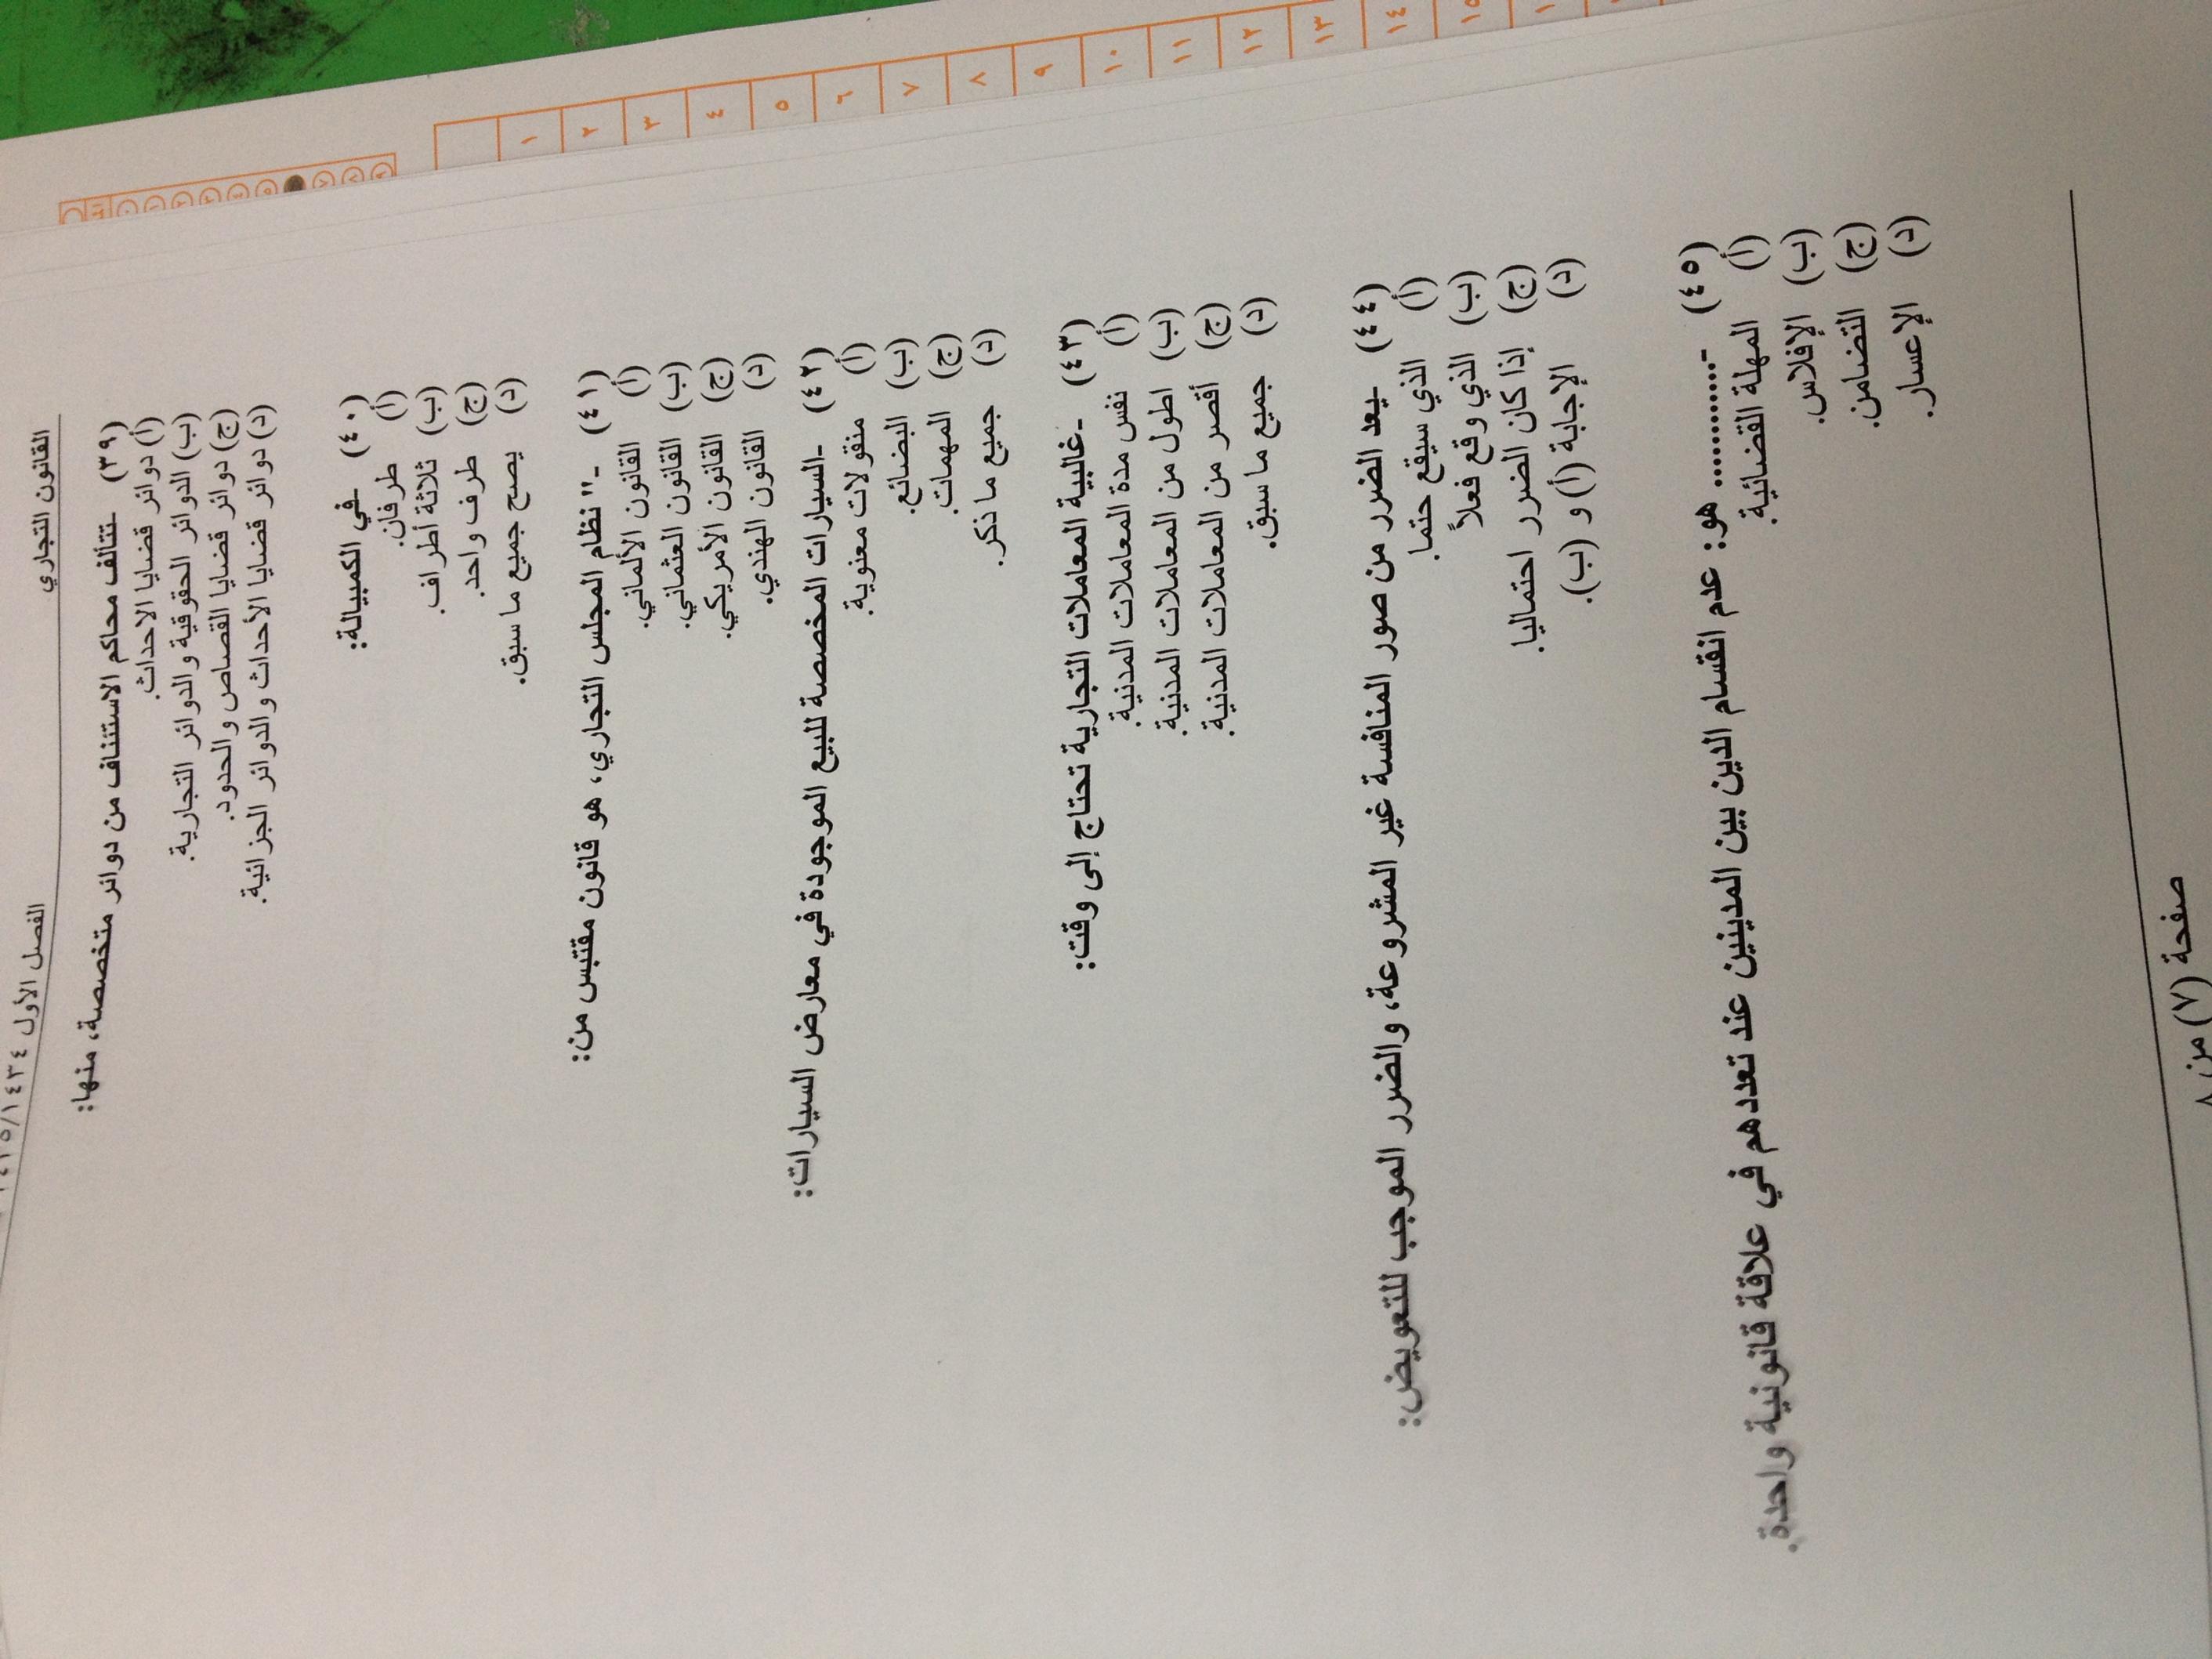 القانون التجاري
الفصل الأول ١٤٣٤/١٤٣٥
(٣٩) -تتألف محاكم الاستئناف من دوائر متخصصة، منها:
(أ) دوائر قضايا الاحداث.
(ب) الدوائر الحقوقية والدوائر التجارية.
(ج) دوائر قضايا القصاص والحدود.
(د) دوائر قضايا الأحداث والدوائر الجزائية.
(٤٠) -في الكمبيالة:
(أ) طرفان.
(ب) ثلاثة أطراف.
(ج) طرف واحد.
(د) يصح جميع ما سبق.
(٤١) -" نظام المجلس التجاري، هو قانون مقتبس من:
(أ) القانون الألماني.
(ب) القانون العثماني.
(ج) القانون الأمريكي.
(د) القانون الهندي.
(٤٢) -السيارات المخصصة للبيع الموجودة في معارض السيارات:
(أ) منقولات معنوية.
(ب) البضائع.
(ج) المهمات.
(د) جميع ما ذكر.
(٤٣) -غالبية المعاملات التجارية تحتاج إلى وقت:
(أ) نفس مدة المعاملات المدنية.
(ب) اطول من المعاملات المدنية.
(ج) أقصر من المعاملات المدنية.
(د) جميع ما سبق.
(٤٤) -يعد الضرر من صور المنافسة غير المشروعة، والضرر الموجب للتعويض:
(أ) الذي سيقع حتما.
(ب) الذي وقع فعلاً
(ج) إذا كان الضرر احتماليا.
(د) الإجابة (أ) و (ب).
(٤٥) -............ هو: عدم انقسام الدين بين المدينين عند تعددهم في علاقة قانونية واحدة.
(أ) المهلة القضائية.
(ب) الإفلاس.
(ج) التضامن.
(د) الإعسار.
صفحة (٧) من ٨
١
٢
٣
٤
٥
٦
٧
٨
٩
١٠
١١
١٢
١٣
١٤
١٥